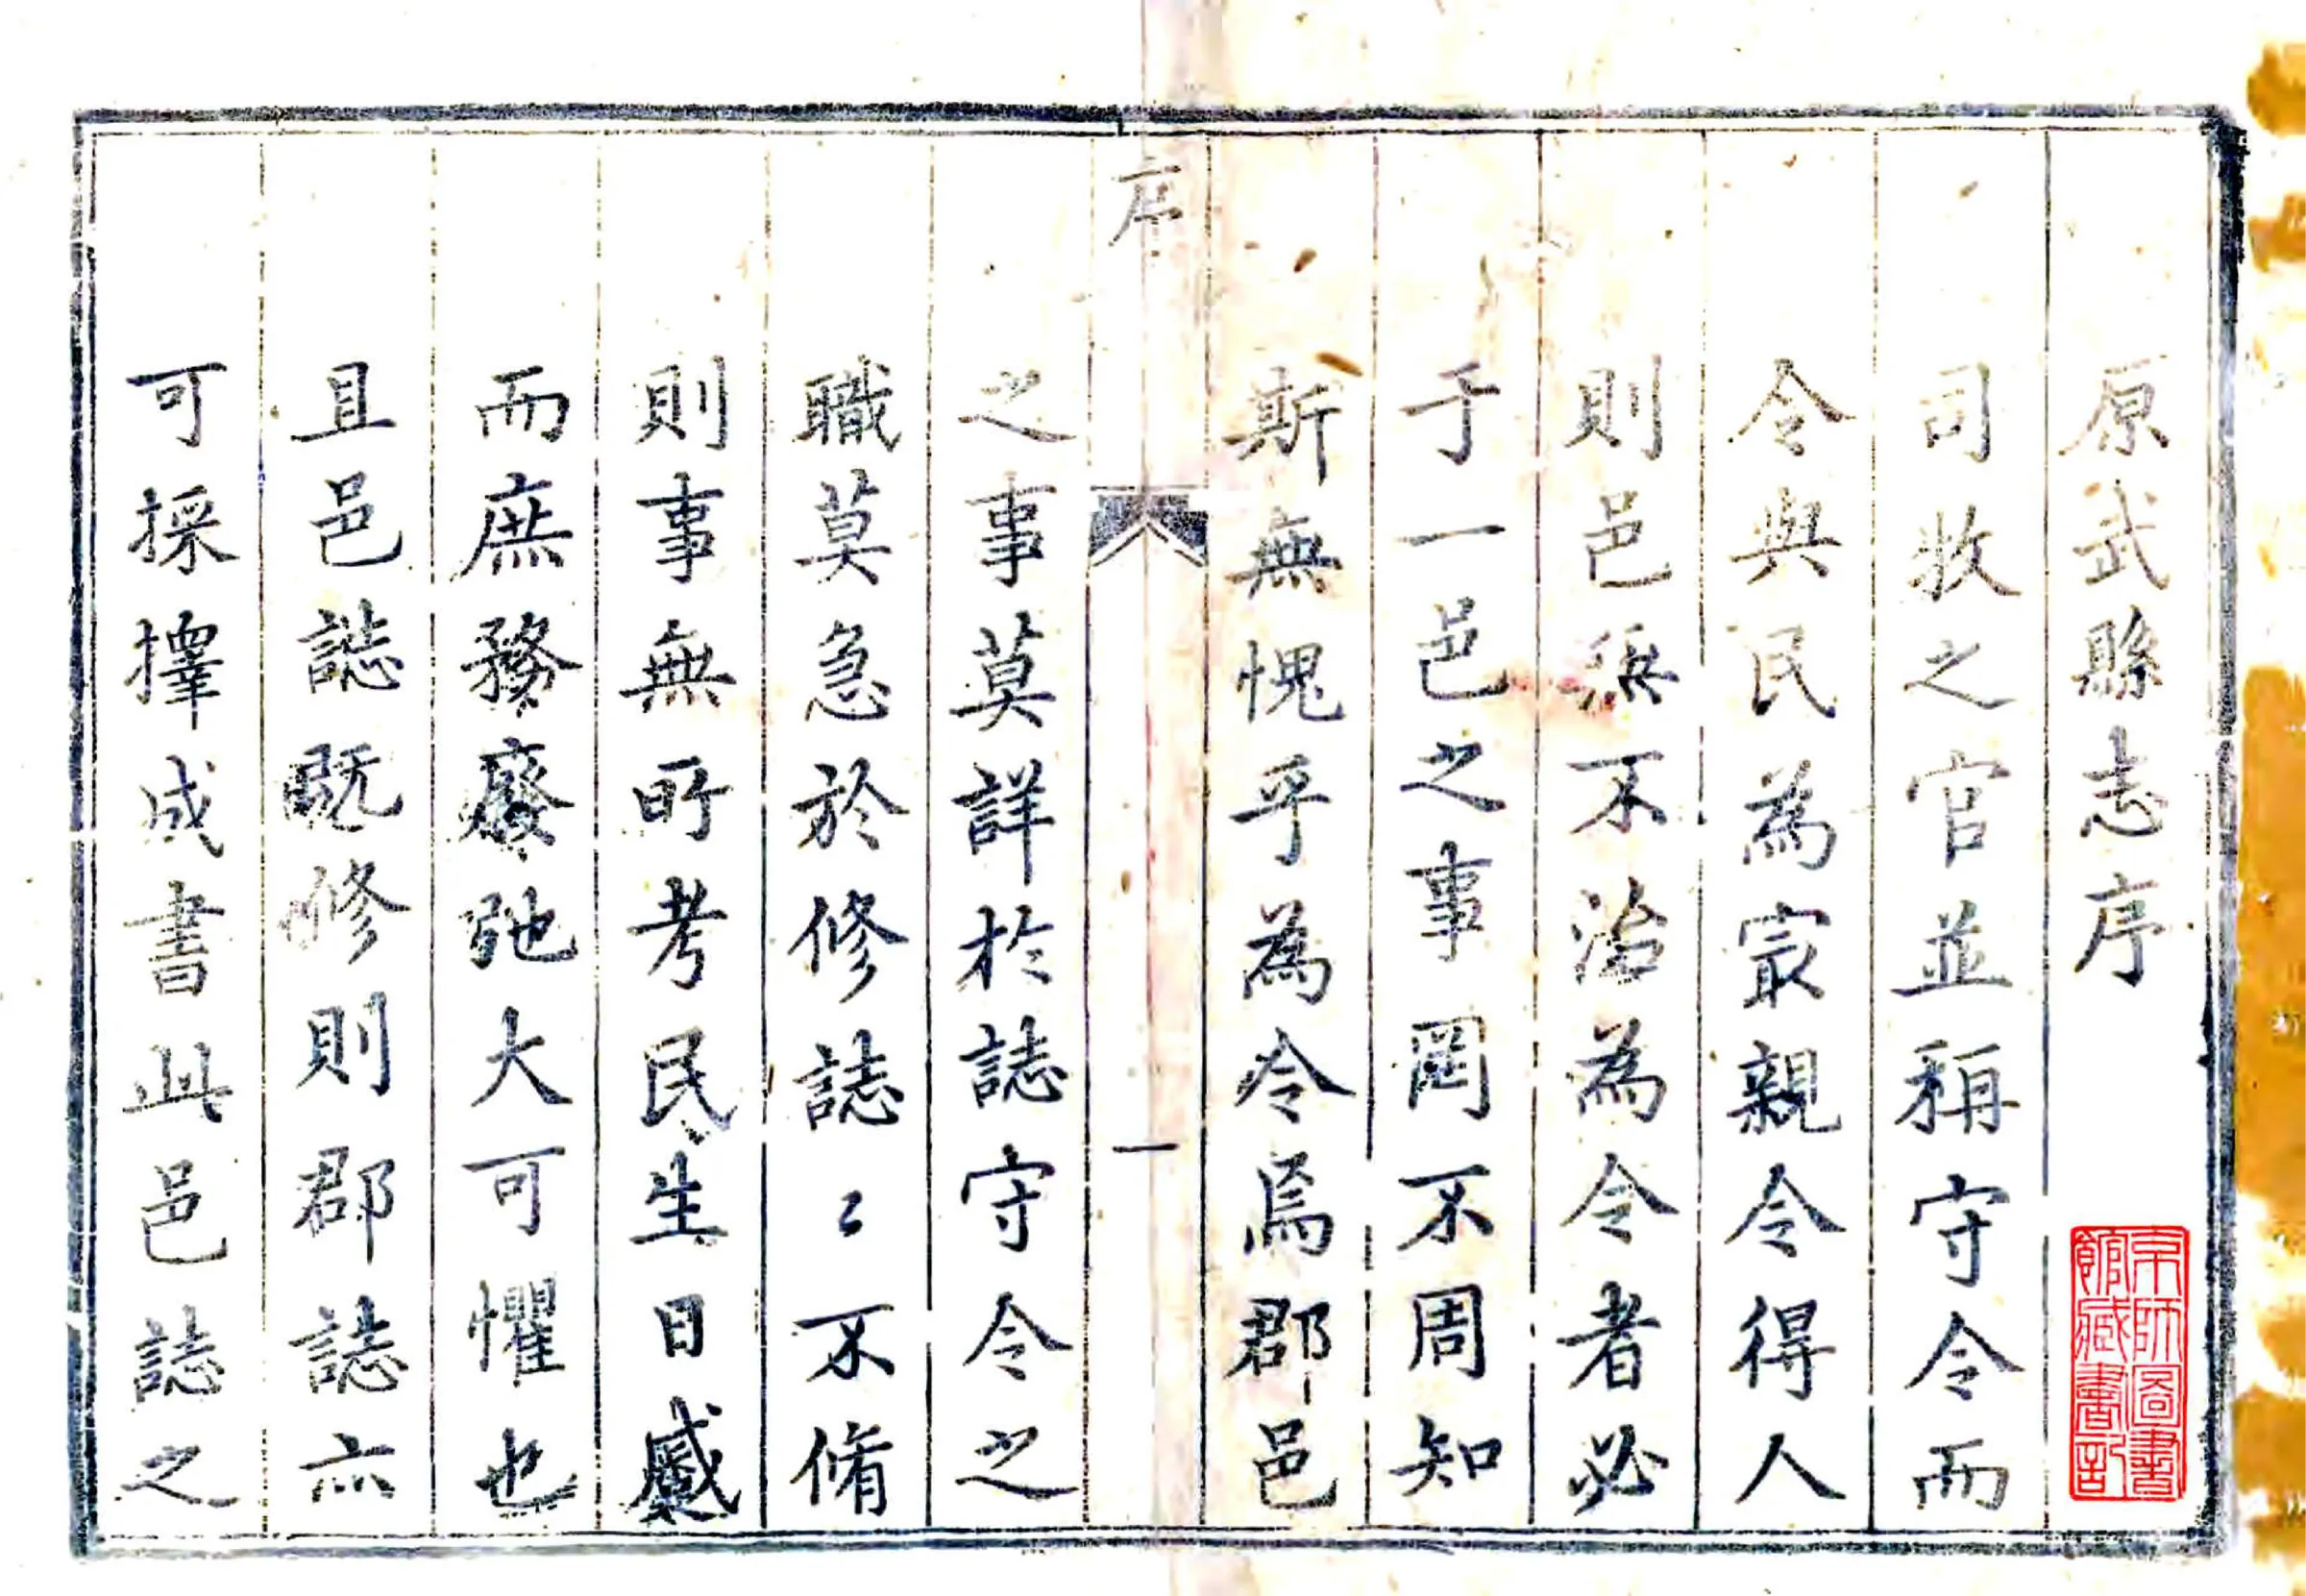 原武縣志序
司牧之官並稱守令而
令與民為㝡親令得人
則邑無不治為令者必
于一邑之事罔不周知
斯無愧乎為令焉郡邑
序
一
之事莫詳於誌守令之
職莫急於修誌〻不脩
則事無所考民生日蹙
而庶務廢弛大可懼也
且邑誌既修則郡誌亦
可採擇成書此邑誌之
京師圖書
館藏書記